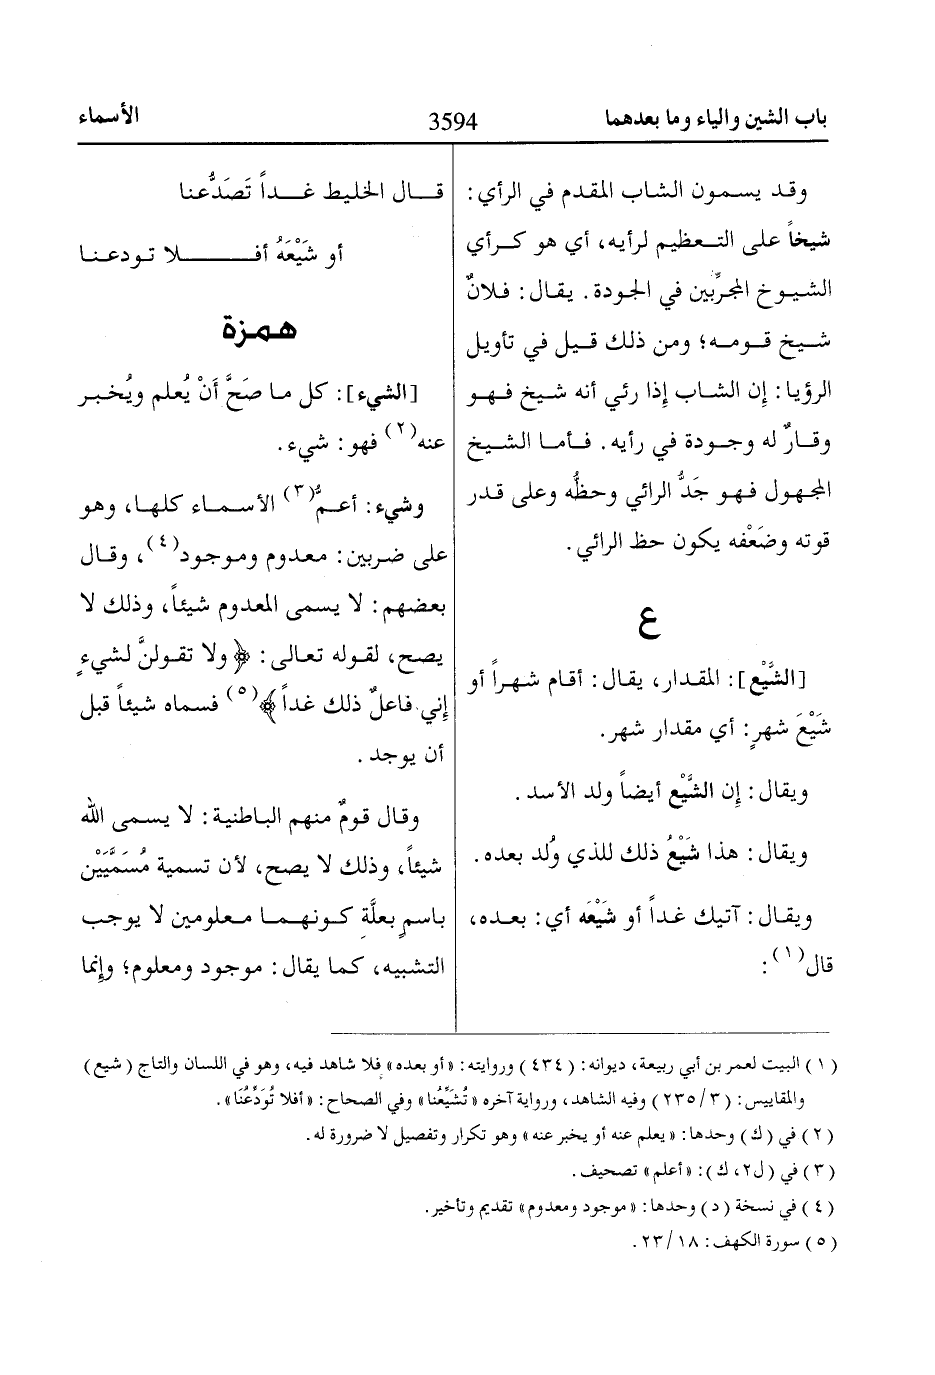 باب الشين والياء وما بعدهما
3594
الأسماء
وقد يسمون الشاب المقدم في الرأي:
شيخاً على التعظيم لرأيه، أي هو كرأي
الشيوخ المجرِّبين في الجودة. يقال: فلانٌ
شيخ قومه؛ ومن ذلك قيل في تأويل
الرؤيا: إن الشاب إذا رئي أنه شيخ فهو
وقارٌ له وجودة في رأيه. فأما الشيخ
المجهول فهو جَدُّ الرائي وحظُّه وعلى قدر
قوته وضَعْفه يكون حظ الرائي.
ع
[الشَّيْع]: المقدار، يقال: أقام شهراً أو
شَيْعَ شهرٍ: أي مقدار شهر.
ويقال: إن الشَّيْع أيضاً ولد الأسد.
ويقال: هذا شَيْعُ ذلك للذي وُلد بعده.
ويقال: آتيك غداً أو شَيْعَه أي: بعده،
قال(١):
قال الخليط غداً تَصَدُّعنا
أو شَيْعَهُ أفلا تودعنا
همزة
[الشيء]: كل ما صَحَّ أَنْ يُعلم ويُخبر
عنه(٢) فهو: شيء.
وشيء: أعمُّ(٣) الأسماء كلها، وهو
على ضربين: معدوم وموجود(٤)، وقال
بعضهم: لا يسمى المعدوم شيئاً، وذلك لا
يصح، لقوله تعالى: ﴿ولا تقولنَّ لشيءٍ
إني فاعلٌ ذلك غداً﴾(٥) فسماه شيئاً قبل
أن يوجد.
وقال قومٌ منهم الباطنية: لا يسمى الله
شيئاً، وذلك لا يصح، لأن تسمية مُسَمَّيَيْن
باسمٍ بعلَّةِ كونهما معلومين لا يوجب
التشبيه، كما يقال: موجود ومعلوم؛ وإنما
(١) البيت لعمر بن أبي ربيعة، ديوانه: (٤٣٤) وروايته: «أو بعده» فلا شاهد فيه، وهو في اللسان والتاج (شيع)
والمقاييس: (٢٣٥/٣) وفيه الشاهد، ورواية آخره «تُشَيِّعُنا» وفي الصحاح: «أفلا تُوَدِّعُنَا».
(٢) في (ك) وحدها: «يعلم عنه أو يخبر عنه» وهو تكرار وتفصيل لا ضرورة له.
(٣) في (ل٢، ك): «أعلم» تصحيف.
(٤) في نسخة (د) وحدها: «موجود ومعدوم» تقديم وتأخير.
(٥) سورة الكهف: ٢٣/١٨.